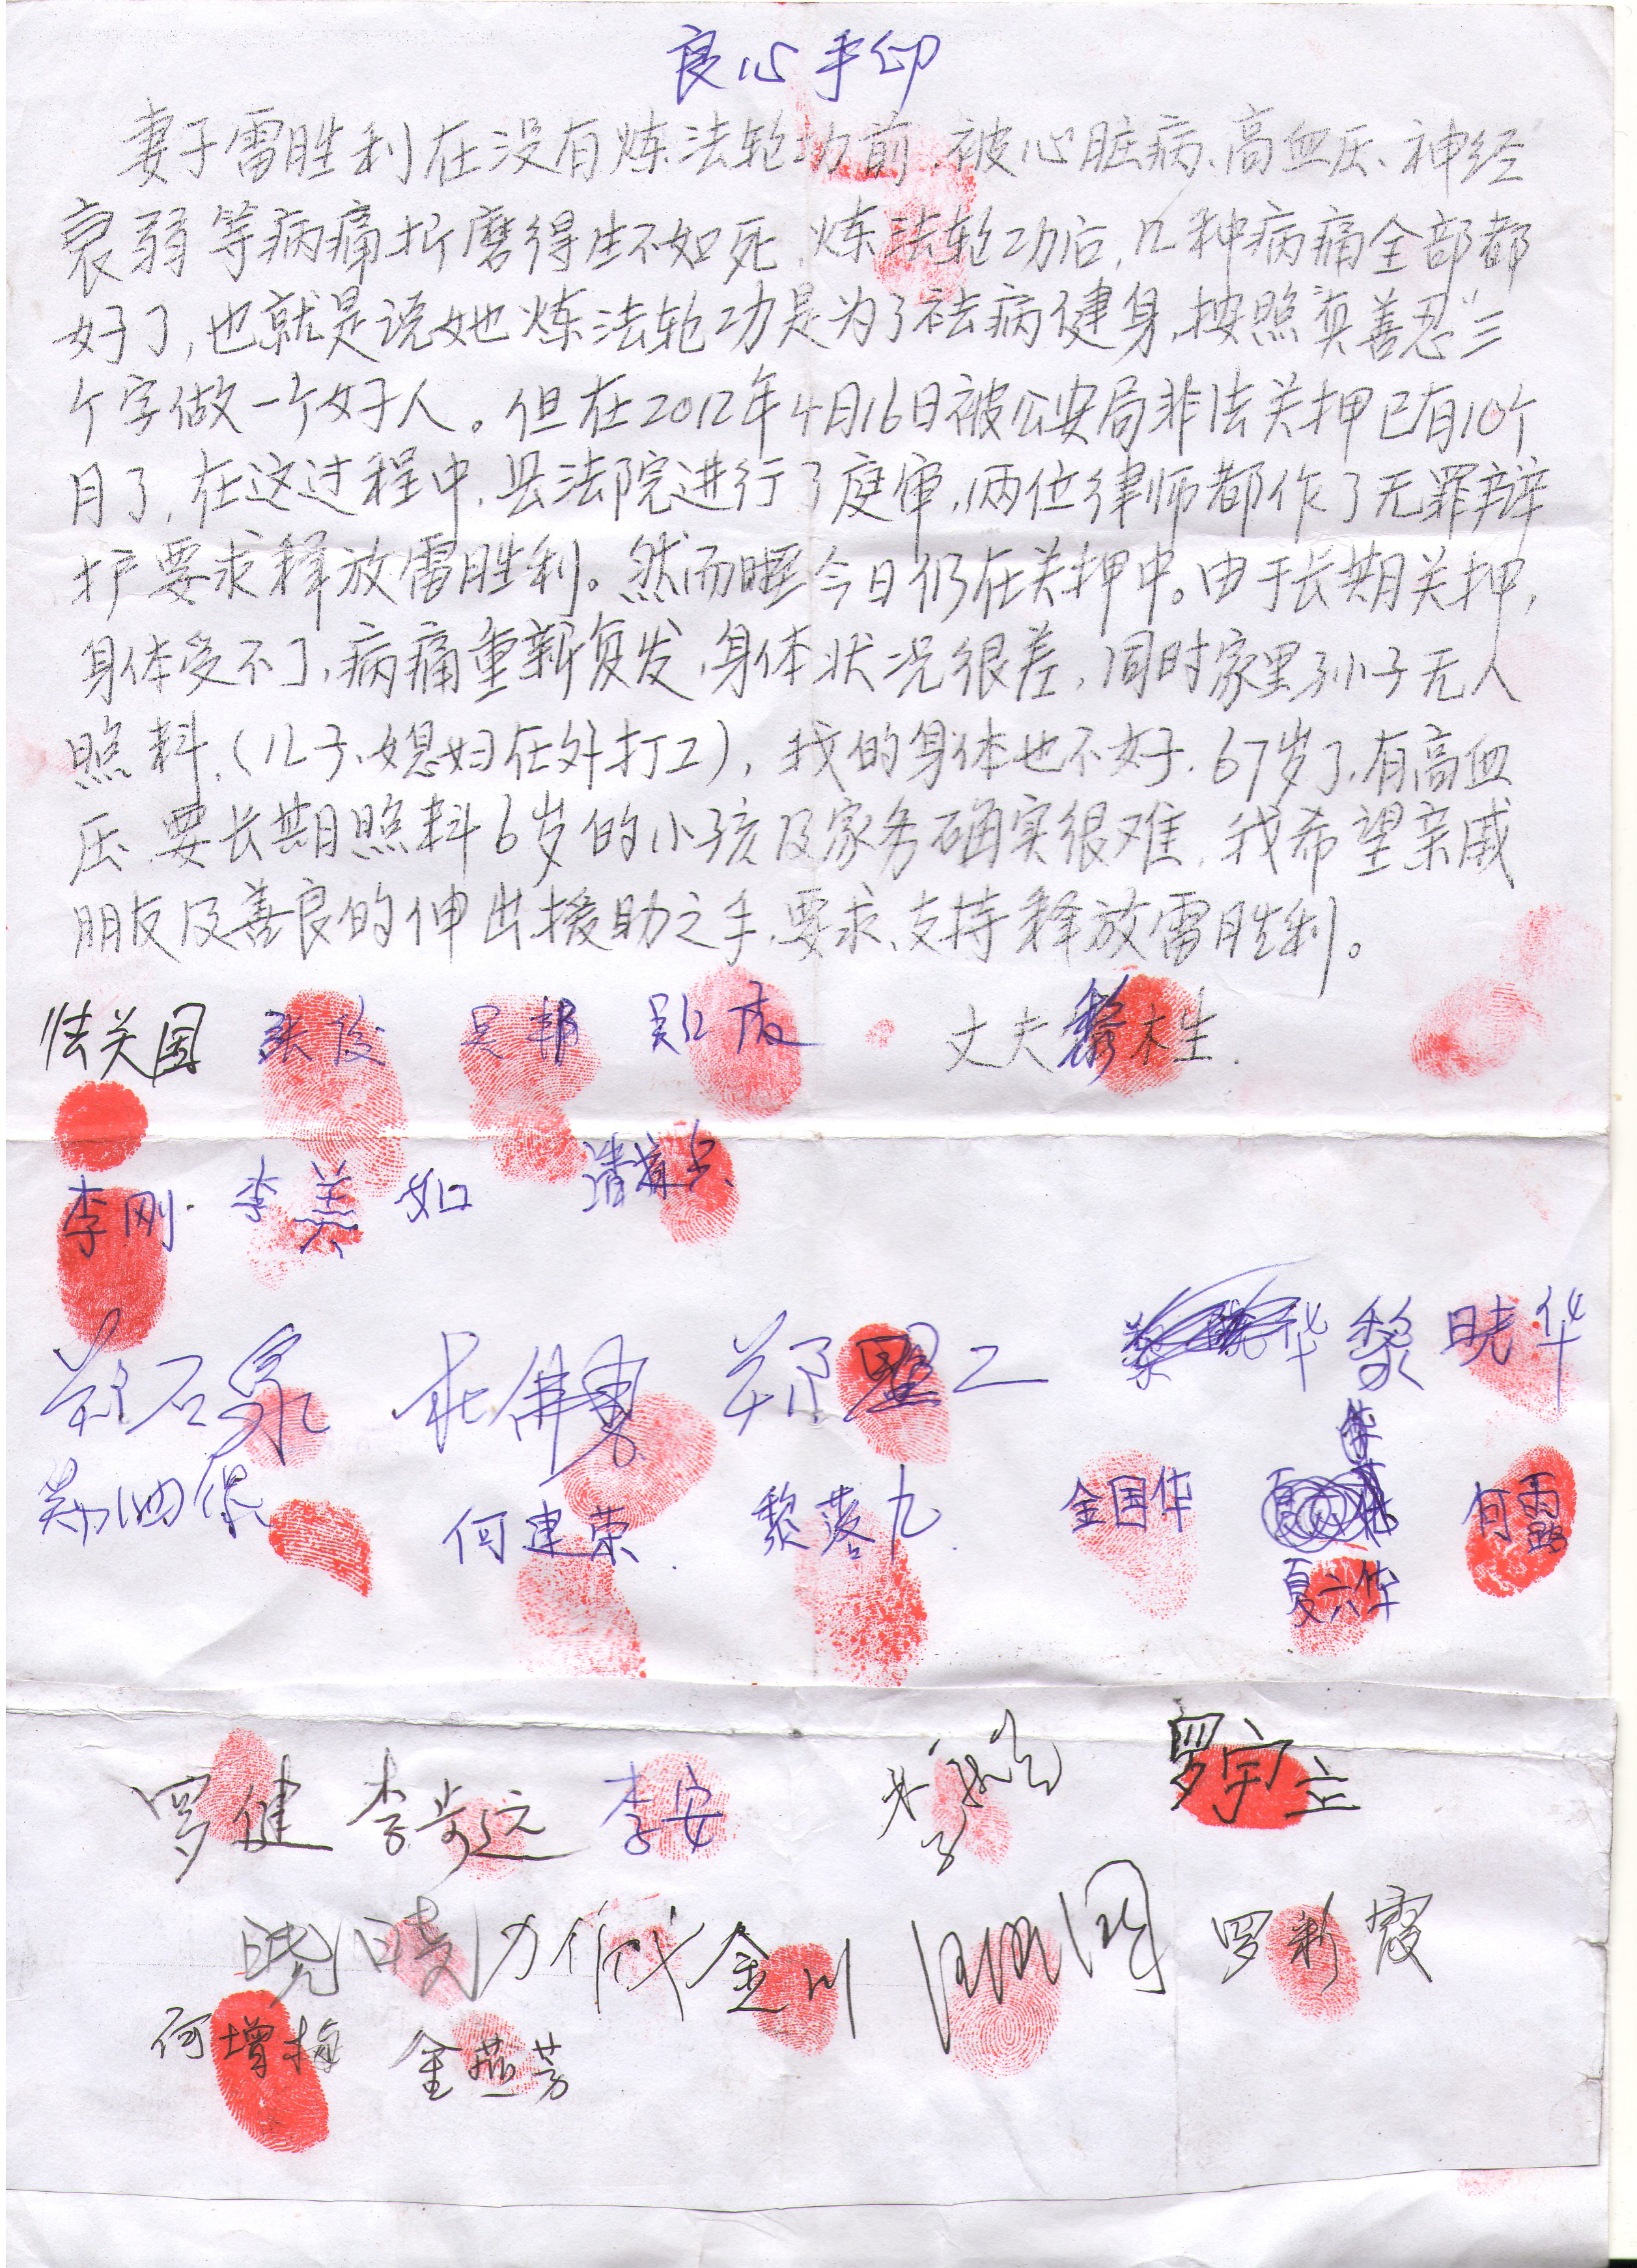 良心手印
妻子雷胜利在没有炼法轮功前、被心脏病、高血压、神经
衰弱等病痛折磨得生不如死,炼法轮功后,几种病痛全部都
好了,也就是说她炼法轮功是为了祛病健身,按照“真善忍”三
个字做一个好人。但在2012年4月16日被公安局非法关押已有10个
月了,在这过程中,县法院进行了庭审,两位律师都作了无罪辩
护要求释放雷胜利。然而今日仍在关押中。由于长期关押,
身体受不了,病痛重新复发,身体状况很差,同时家里孙子无人
照料,(儿子、媳妇在外打工),我的身体也不好.67岁了,有高血
压,要长期照料6岁的小孩及家务确实很难,我希望亲戚
朋友及善良的伸出援助之手,要求、支持释放雷胜利。
关国 张俊 吴 丈夫黎木生.
李刚 李美如
郑石泉 郑 黎晓华
何建荣 黎落九 金国华 何露
夏六华
罗健 李安 罗宇立
金川 罗新霞
何增梅 金燕芳